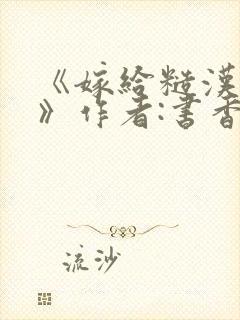 《嫁给糙汉
》作者:书香
流沙